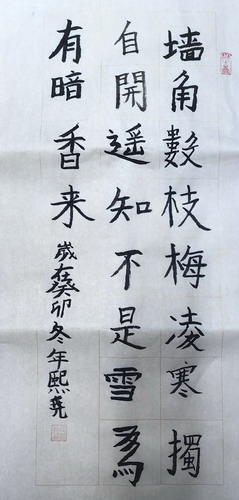 墙角數枝梅凌寒獨
自開遥知不是雪為
有暗香来
歲在癸卯冬年熙堯